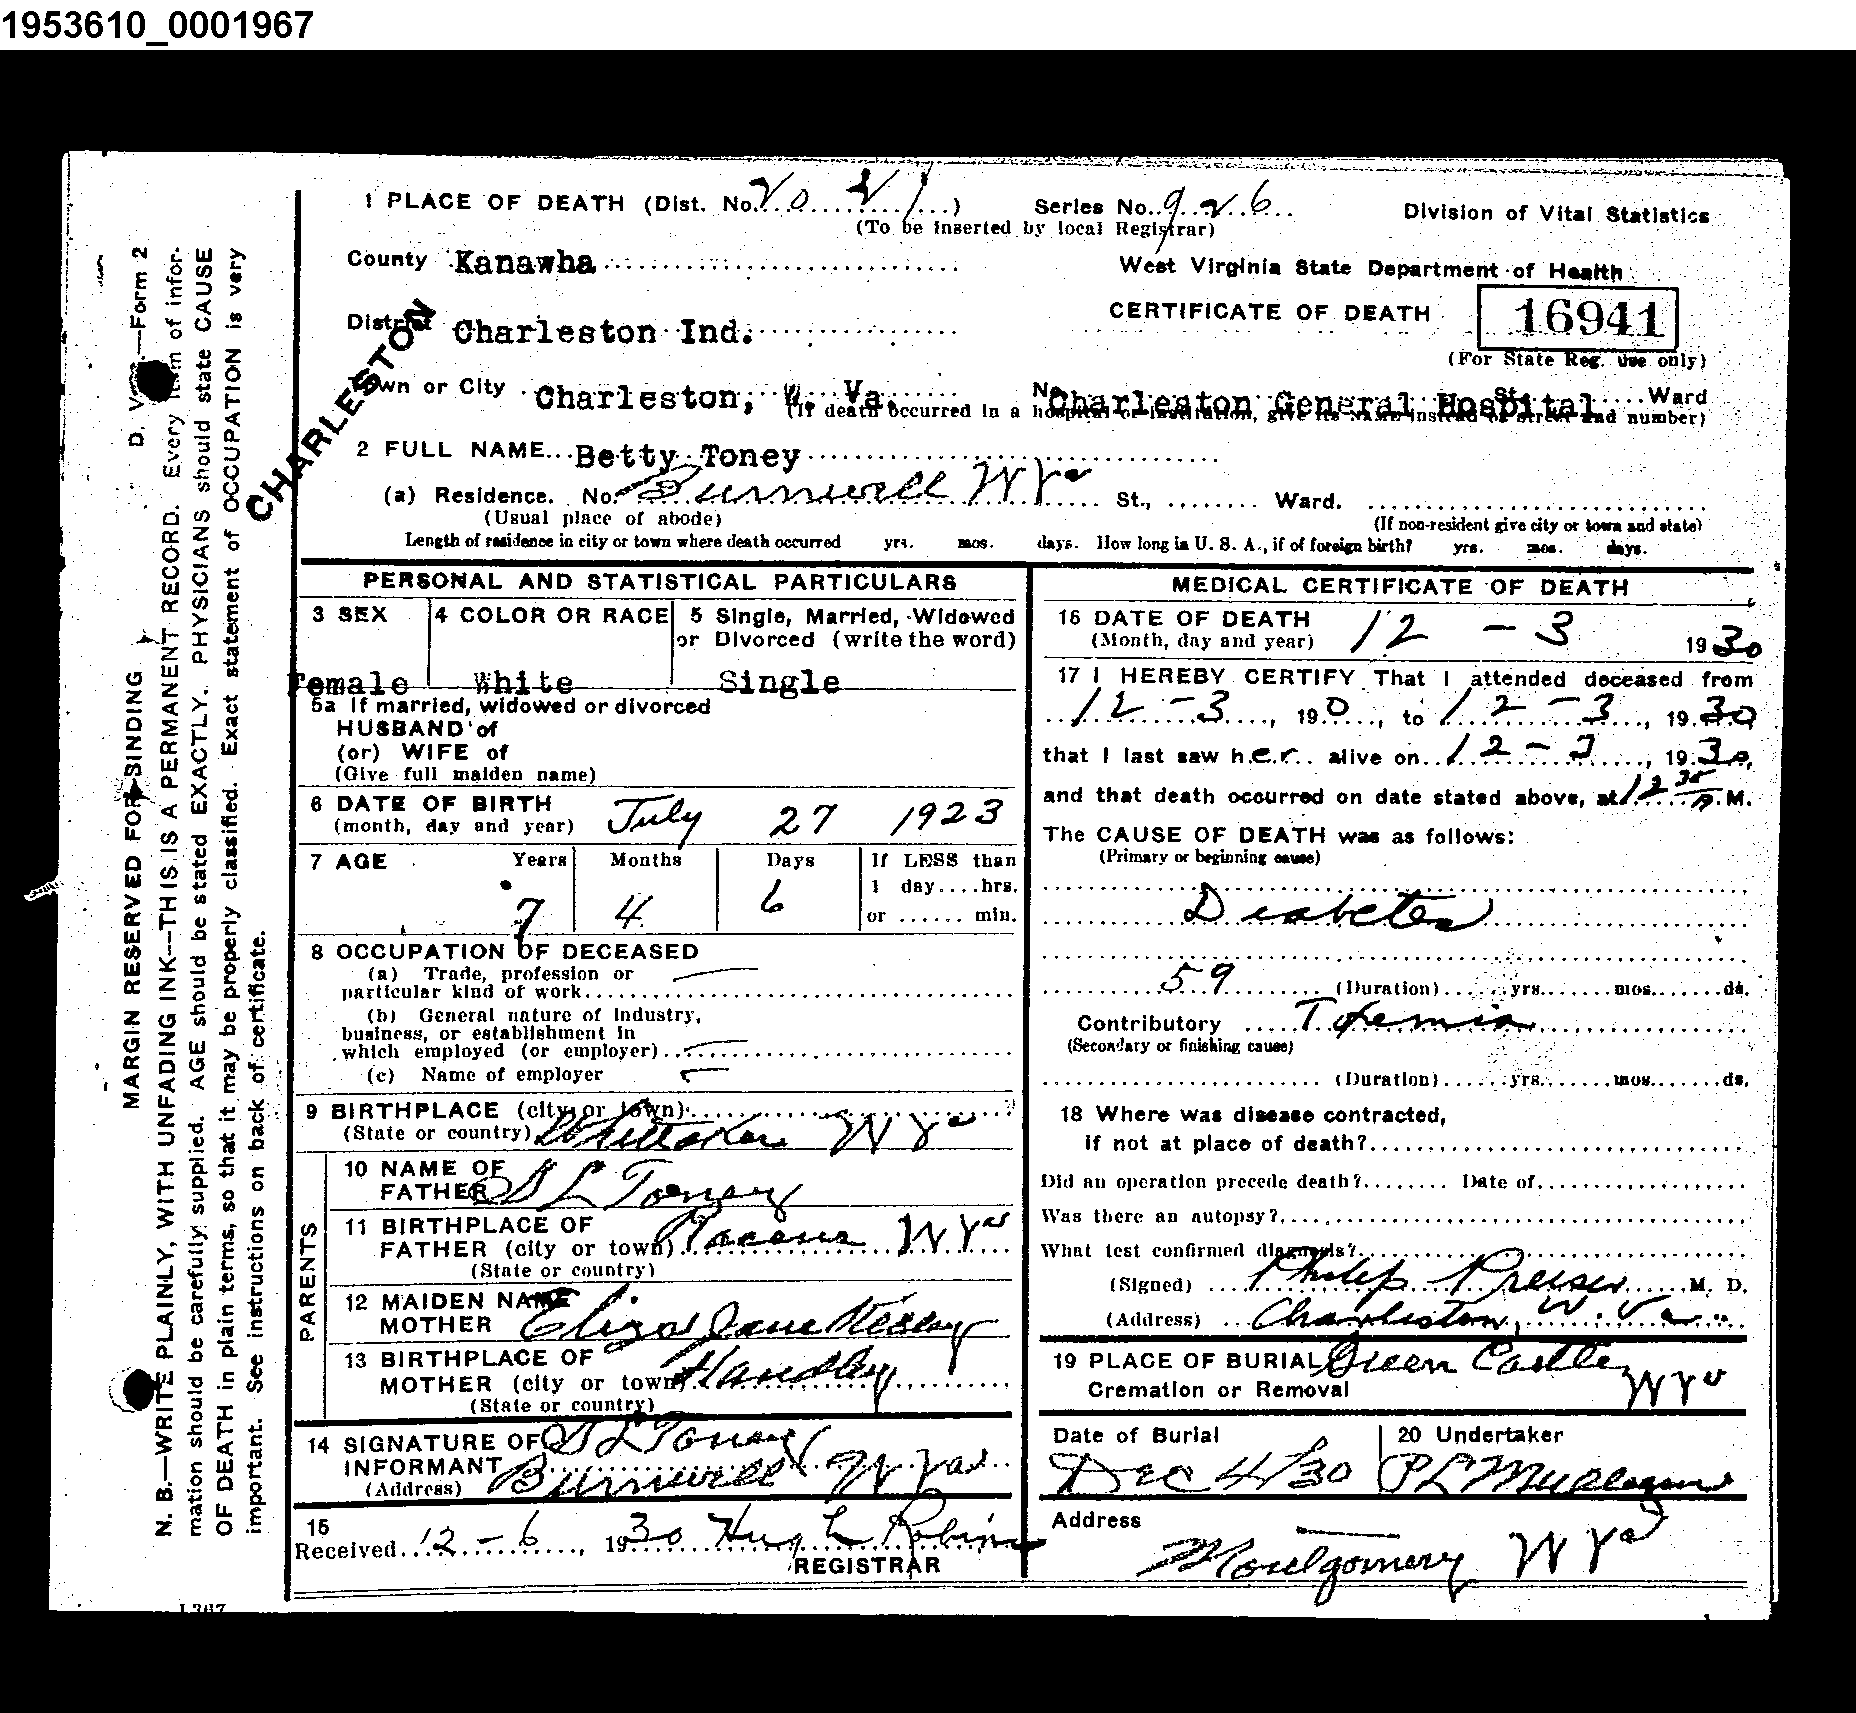 1953610_0001967
1 PLACE OF DEATH (Dist. No. 20 21) Series No. 926 Division of Vital Statistics
(To be inserted by local Registrar)
County Kanawha West Virginia State Department of Health
CERTIFICATE OF DEATH 16941
District Charleston Ind.
(For State Reg. use only)
CHARLESTON
Town or City Charleston, W. Va. No. Charleston General Hospital St. Ward
(If death occurred in a hospital or institution, give its name instead of street and number)
2 FULL NAME Betty Toney
(a) Residence. No. Burnwell W Va St., Ward.
(Usual place of abode) (If non-resident give city or town and state)
Length of residence in city or town where death occurred yrs. mos. days. How long in U. S. A., if of foreign birth? yrs. mos. days.
PERSONAL AND STATISTICAL PARTICULARS
3 SEX 4 COLOR OR RACE 5 Single, Married, Widowed
or Divorced (write the word)
Female White Single
5a If married, widowed or divorced
HUSBAND of
(or) WIFE of
(Give full maiden name)
6 DATE OF BIRTH July 27 1923
(month, day and year)
7 AGE Years Months Days If LESS than
1 day....hrs.
7 4 6 or ...... min.
8 OCCUPATION OF DECEASED
(a) Trade, profession or
particular kind of work
(b) General nature of Industry,
business, or establishment in
which employed (or employer)
(c) Name of employer
9 BIRTHPLACE (city or town)
(State or country) Whittaker W Va
PARENTS
10 NAME OF
FATHER S L Toney
11 BIRTHPLACE OF
FATHER (city or town) W Va
(State or country)
12 MAIDEN NAME
MOTHER Eliza Jane
13 BIRTHPLACE OF
MOTHER (city or town) Handley
(State or country)
14 SIGNATURE OF S L Toney
INFORMANT
(Address) Burnwell W Va
15
Received 12-6, 1930 Hugh Robins
REGISTRAR
MEDICAL CERTIFICATE OF DEATH
16 DATE OF DEATH 12 - 3 1930
(Month, day and year)
17 I HEREBY CERTIFY That I attended deceased from
12-3, 190, to 12-3, 1930
that I last saw her alive on 12-3, 1930,
and that death occurred on date stated above, at 12 30 P.M.
The CAUSE OF DEATH was as follows:
(Primary or beginning cause)
Diabetes
59 (Duration) yrs. mos. ds.
Contributory Toxemia
(Secondary or finishing cause)
(Duration) yrs. mos. ds.
18 Where was disease contracted,
if not at place of death?
Did an operation precede death? Date of
Was there an autopsy?
What test confirmed diagnosis?
(Signed) Philip Preiser M. D.
(Address) Charleston, W. Va.
19 PLACE OF BURIAL Green Castle
Cremation or Removal W Va
Date of Burial 20 Undertaker
Dec 4/30 P L
Address
Montgomery W Va
D. V. S.—Form 2
MARGIN RESERVED FOR BINDING
N. B.—WRITE PLAINLY, WITH UNFADING INK—THIS IS A PERMANENT RECORD. Every item of infor-
mation should be carefully supplied. AGE should be stated EXACTLY. PHYSICIANS should state CAUSE
OF DEATH in plain terms, so that it may be properly classified. Exact statement of OCCUPATION is very
important. See instructions on back of certificate.